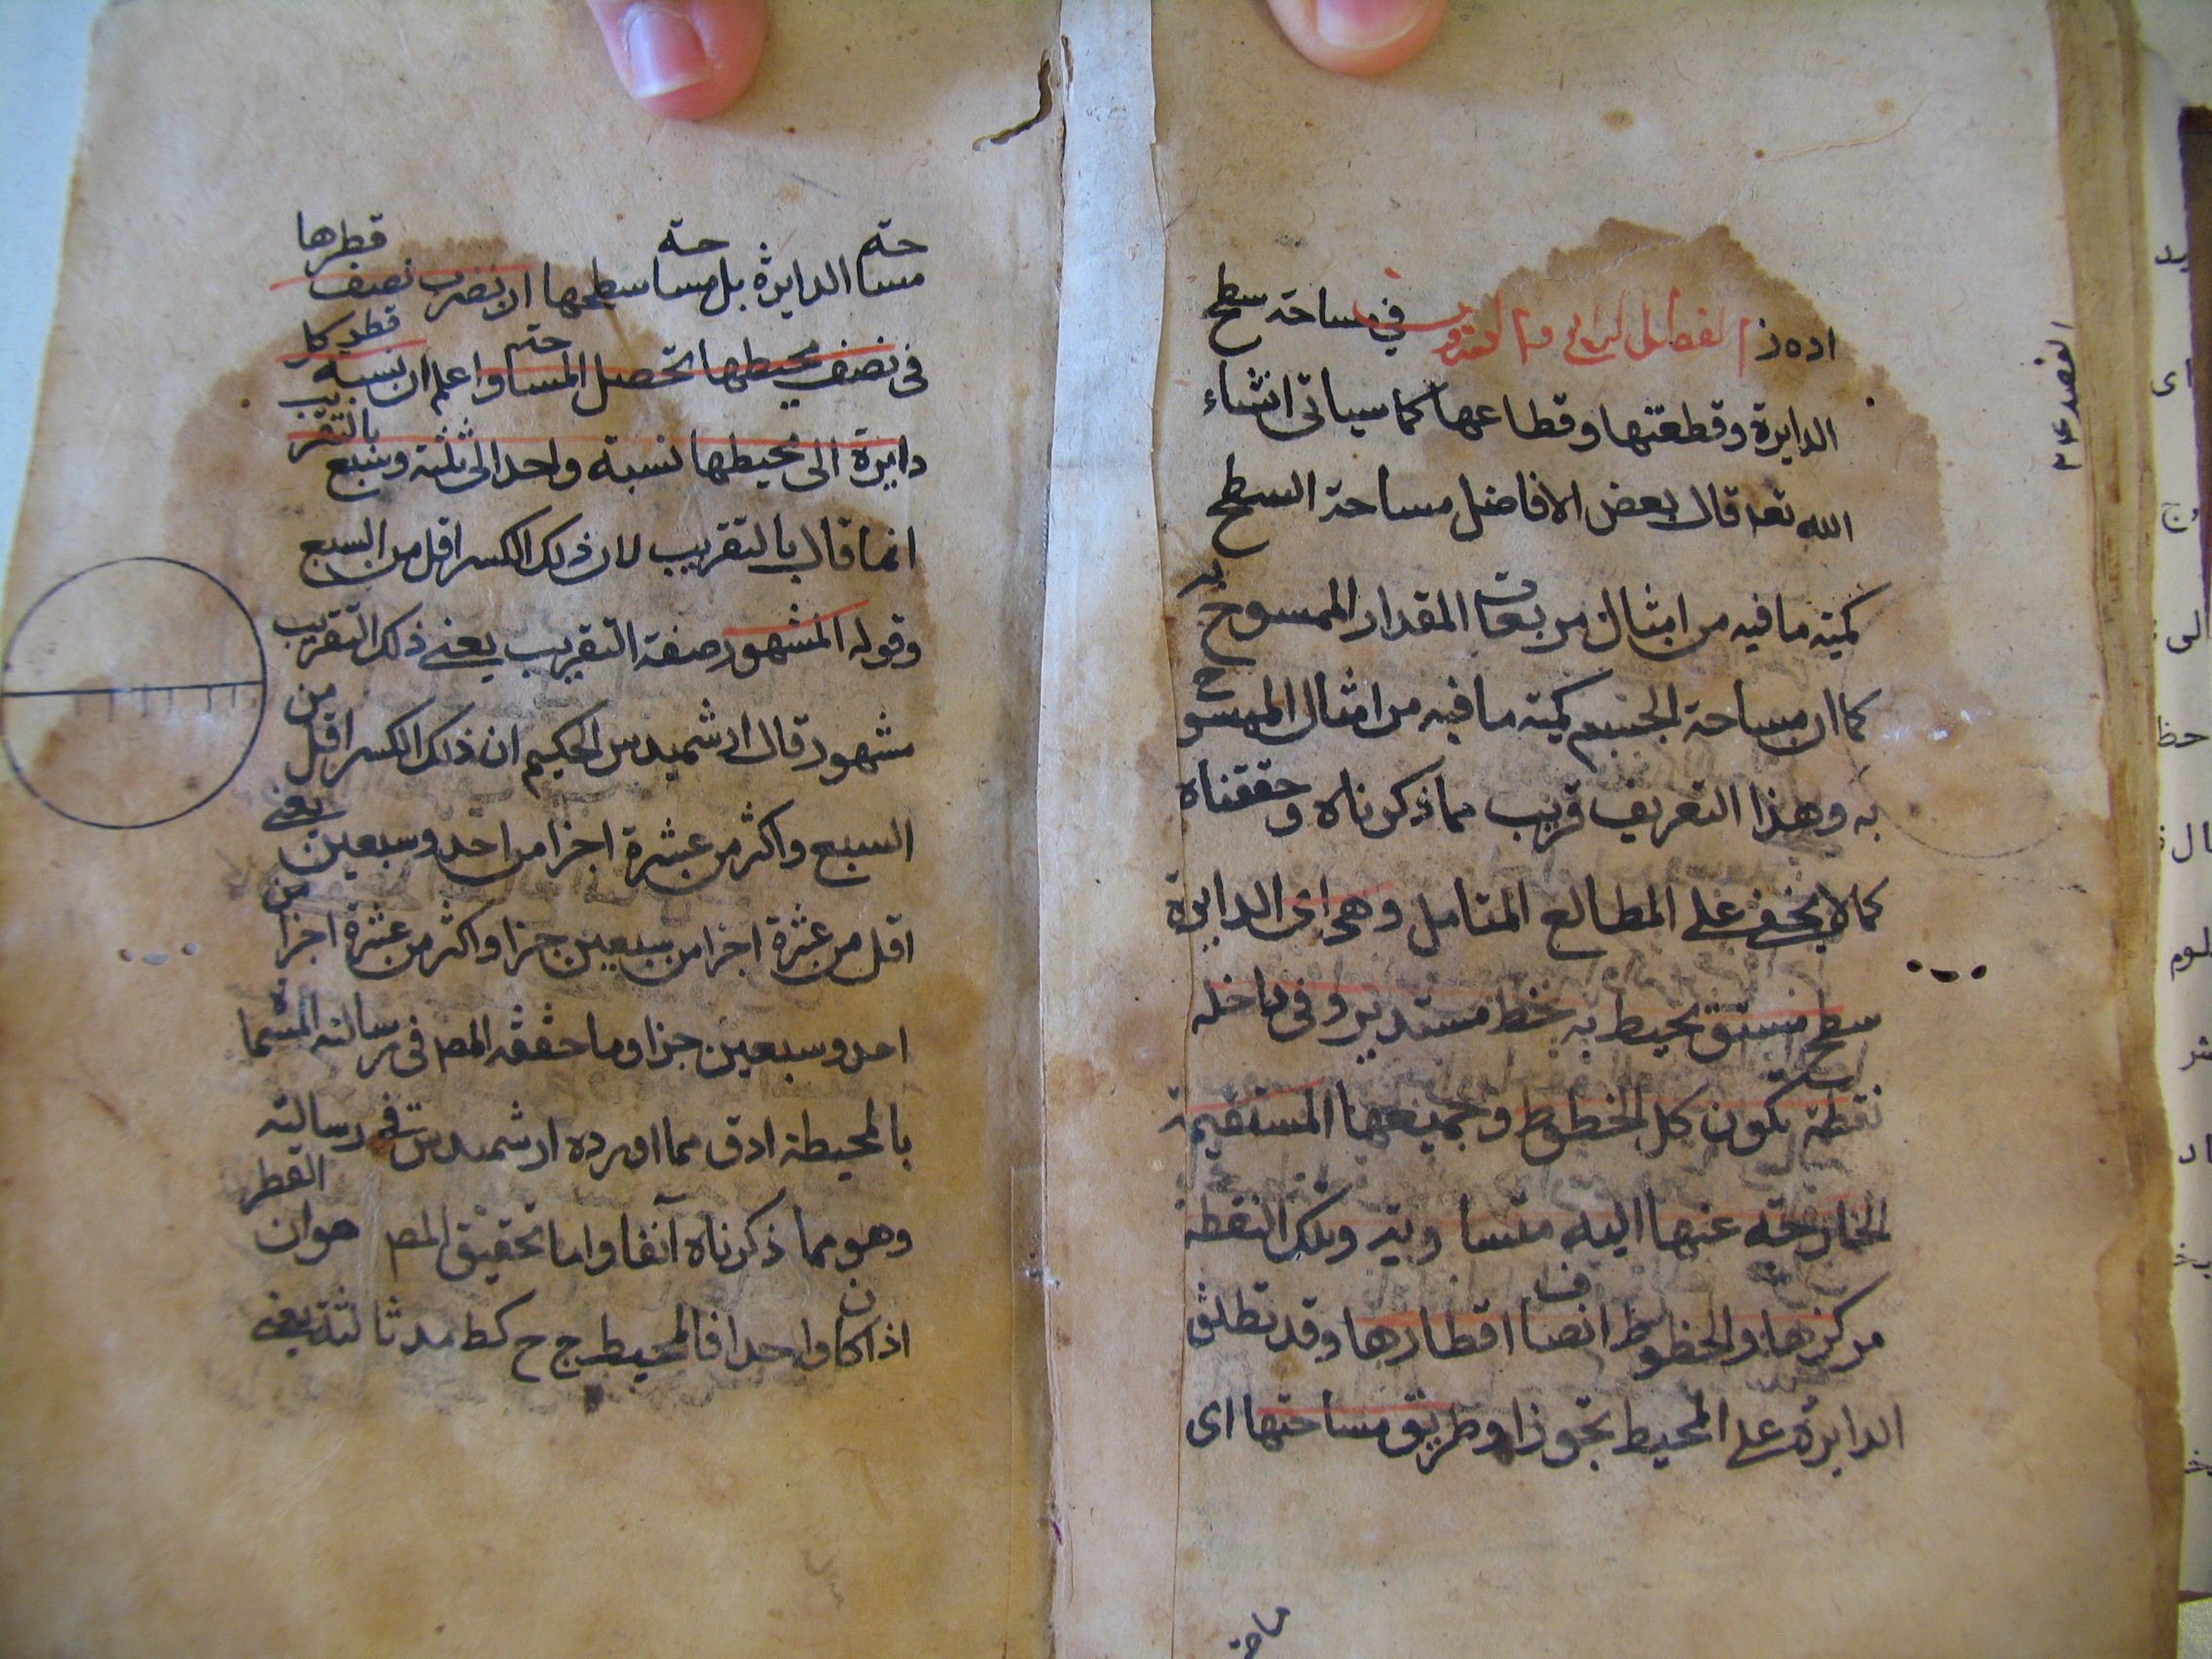 اده ز الفصل الرابع في مساحة سطح
الدايرة وقطعتها وقطاعها كما سياتى انشاء
الله تعا قال بعض الافاضل مساحة السطح
كمية ما فيه من امثال مربعات المقدار الممسوح به
كما ان مساحة الجسم كمية ما فيه من امثال الممسوح
به وهذا التعريف قريب مما ذكرناه وحققناه
كما لا يخفى على المطالع المتامل وهى اى الدايرة
سطح مستو يحيط به خط مستدير وفى داخله
نقطة يكون كل الخطوط وجميعها المستقيمة
الخارجة عنها اليه متساوية وتلك النقطة
مركزها والخطوط انصاف اقطارها وقد تطلق
الدايرة على المحيط تجوزا وطريق مساحتها اى
مساحة
مساحة الدايرة بل مساحة سطحها ان نضرب نصف قطرها
فى نصف محيطها تحصل المساحة واعلم ان نسبة قطر كل
دايرة الى محيطها نسبة واحد الى ثلثة وسبع بالتقريب
انما قال بالتقريب لان ذلك الكسر اقل من السبع
وقوله المشهور صفة التقريب يعنى ذلك التقريب
مشهور قال ارشميدس الحكيم ان ذلك الكسر اقل من
السبع واكثر من عشرة اجزا من احد وسبعين يعنى
اقل من عشرة اجزا من سبعين جزا واكثر من عشرة اجزا من
احد وسبعين جزا وما حققه المص فى رسالته المسماة
بالمحيطية ادق مما اورده ارشميدس فى رسالته
وهو مما ذكرناه آنفا واما تحقيق المص هو ان القطر
اذا كان واحدا فالمحيط ج ح كط مد ثالثة يعنى